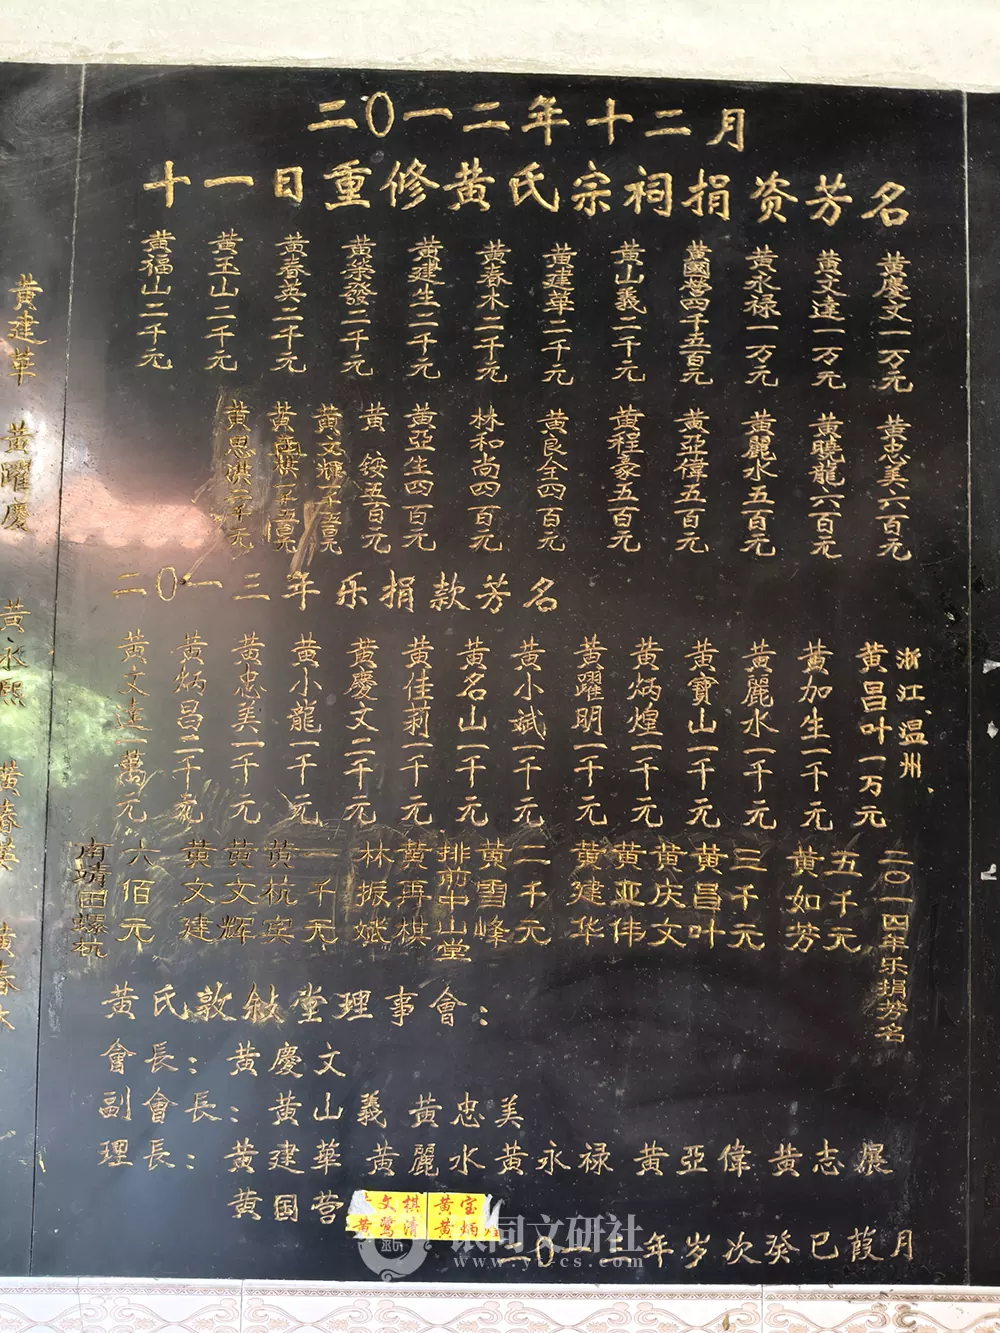 二〇一二年十二月
十一日重修黄氏宗祠捐资芳名
黄慶文一万元
黄文達一万元
黄永禄一万元
黄國營四千五百元
黄山義二千元
黄建華二千元
黄春木二千元
黄建生二千元
黄榮發二千元
黄春英二千元
黄玉山二千元
黄福山二千元
黄忠美六百元
黄曉龍六百元
黄麗水五百元
黄亞偉五百元
黄程豪五百元
黄良全四百元
林和尚四百元
黄亞生四百元
黄銨五百元
黄文輝
黄
黄思洪
二〇一三年乐捐款芳名
浙江温州
黄昌叶一万元
黄加生一千元
黄麗水一千元
黄寶山一千元
黄炳煌一千元
黄躍明一千元
黄小斌一千元
黄名山一千元
黄佳莉一千元
黄慶文二千元
黄小龍一千元
黄忠美一千元
黄炳昌二千元
黄文達一萬元
二〇一四年乐捐芳名
五千元
黄如芳
三千元
黄昌叶
黄庆文
黄亚伟
黄建华
二千元
黄雪峰
排前中山堂
黄再棋
林振斌
一千元
黄杭宾
黄文辉
黄文建
六佰元
南靖田螺杭
黄氏敦敘堂理事會：
會長：黄慶文
副會長：黄山義 黄忠美
理長：黄建華 黄麗水 黄永禄 黄亞偉 黄志展
黄国营 文棋 黄宝
黄鹭清 黄炳煌
年岁次癸巳葭月
黄建華 黄躍慶 黄永熙 黄春英 黄春木
银同文研社
www.yt-cs.com